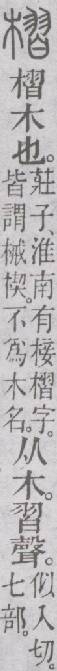 槢
槢木也。
莊子、淮南有接槢字。
皆謂械楔。不爲木名。
从木。習聲。
似入切。
七部。